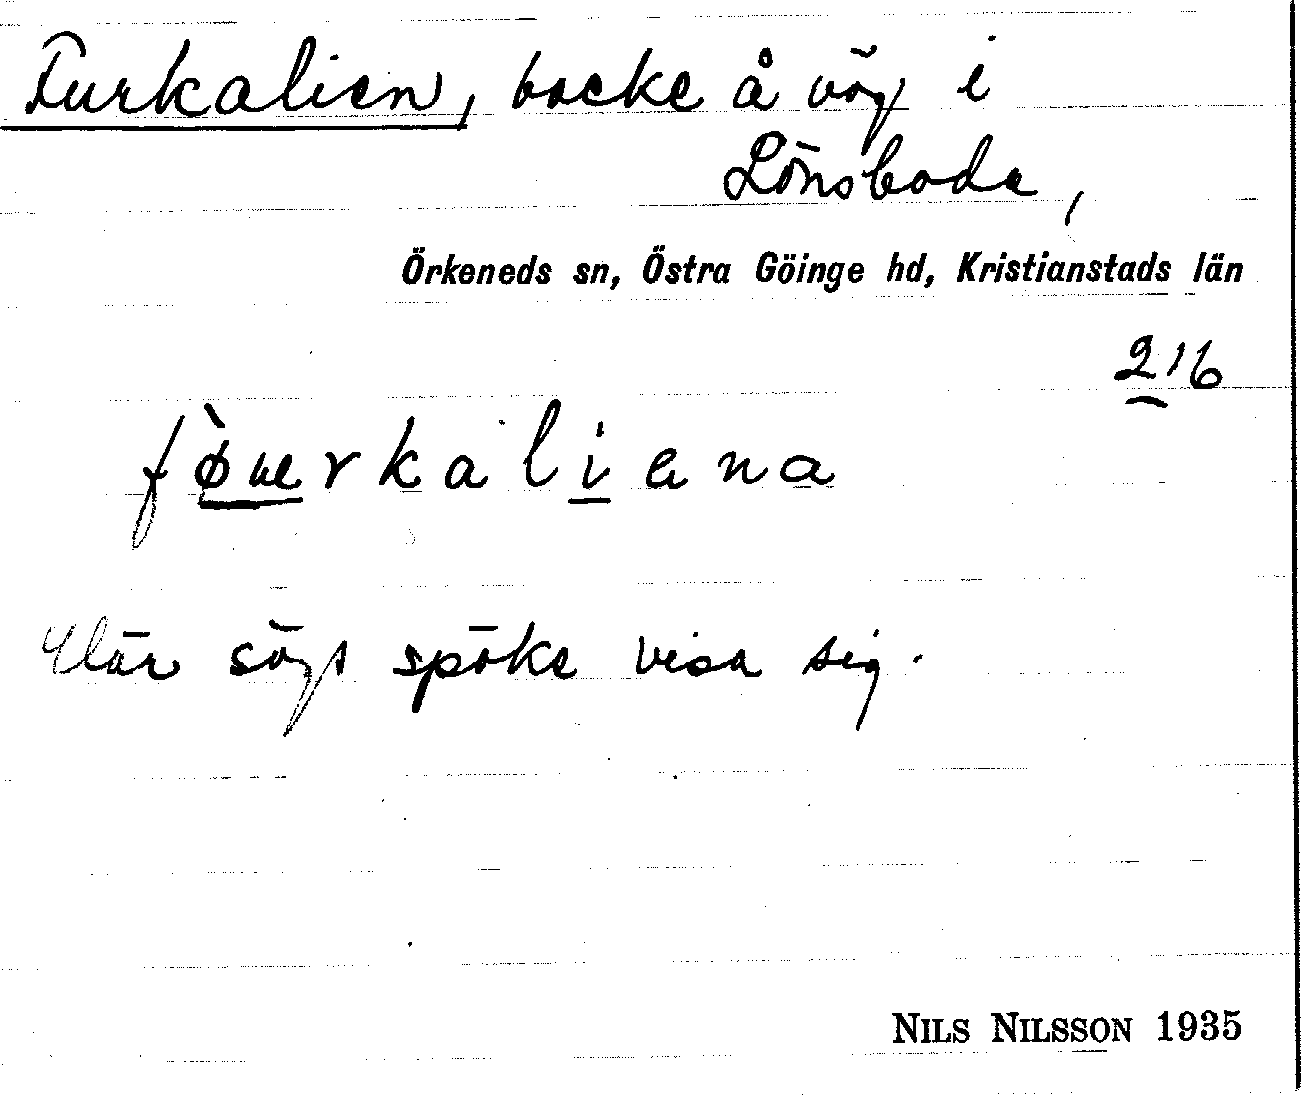 Furkalien, backe å väg i
Lönsboda,
Örkeneds sn, Östra Göinge hd, Kristianstads län
216
fø̀uerkaliena
Här sägs spöke visa sig.
NILS NILSSON 1935